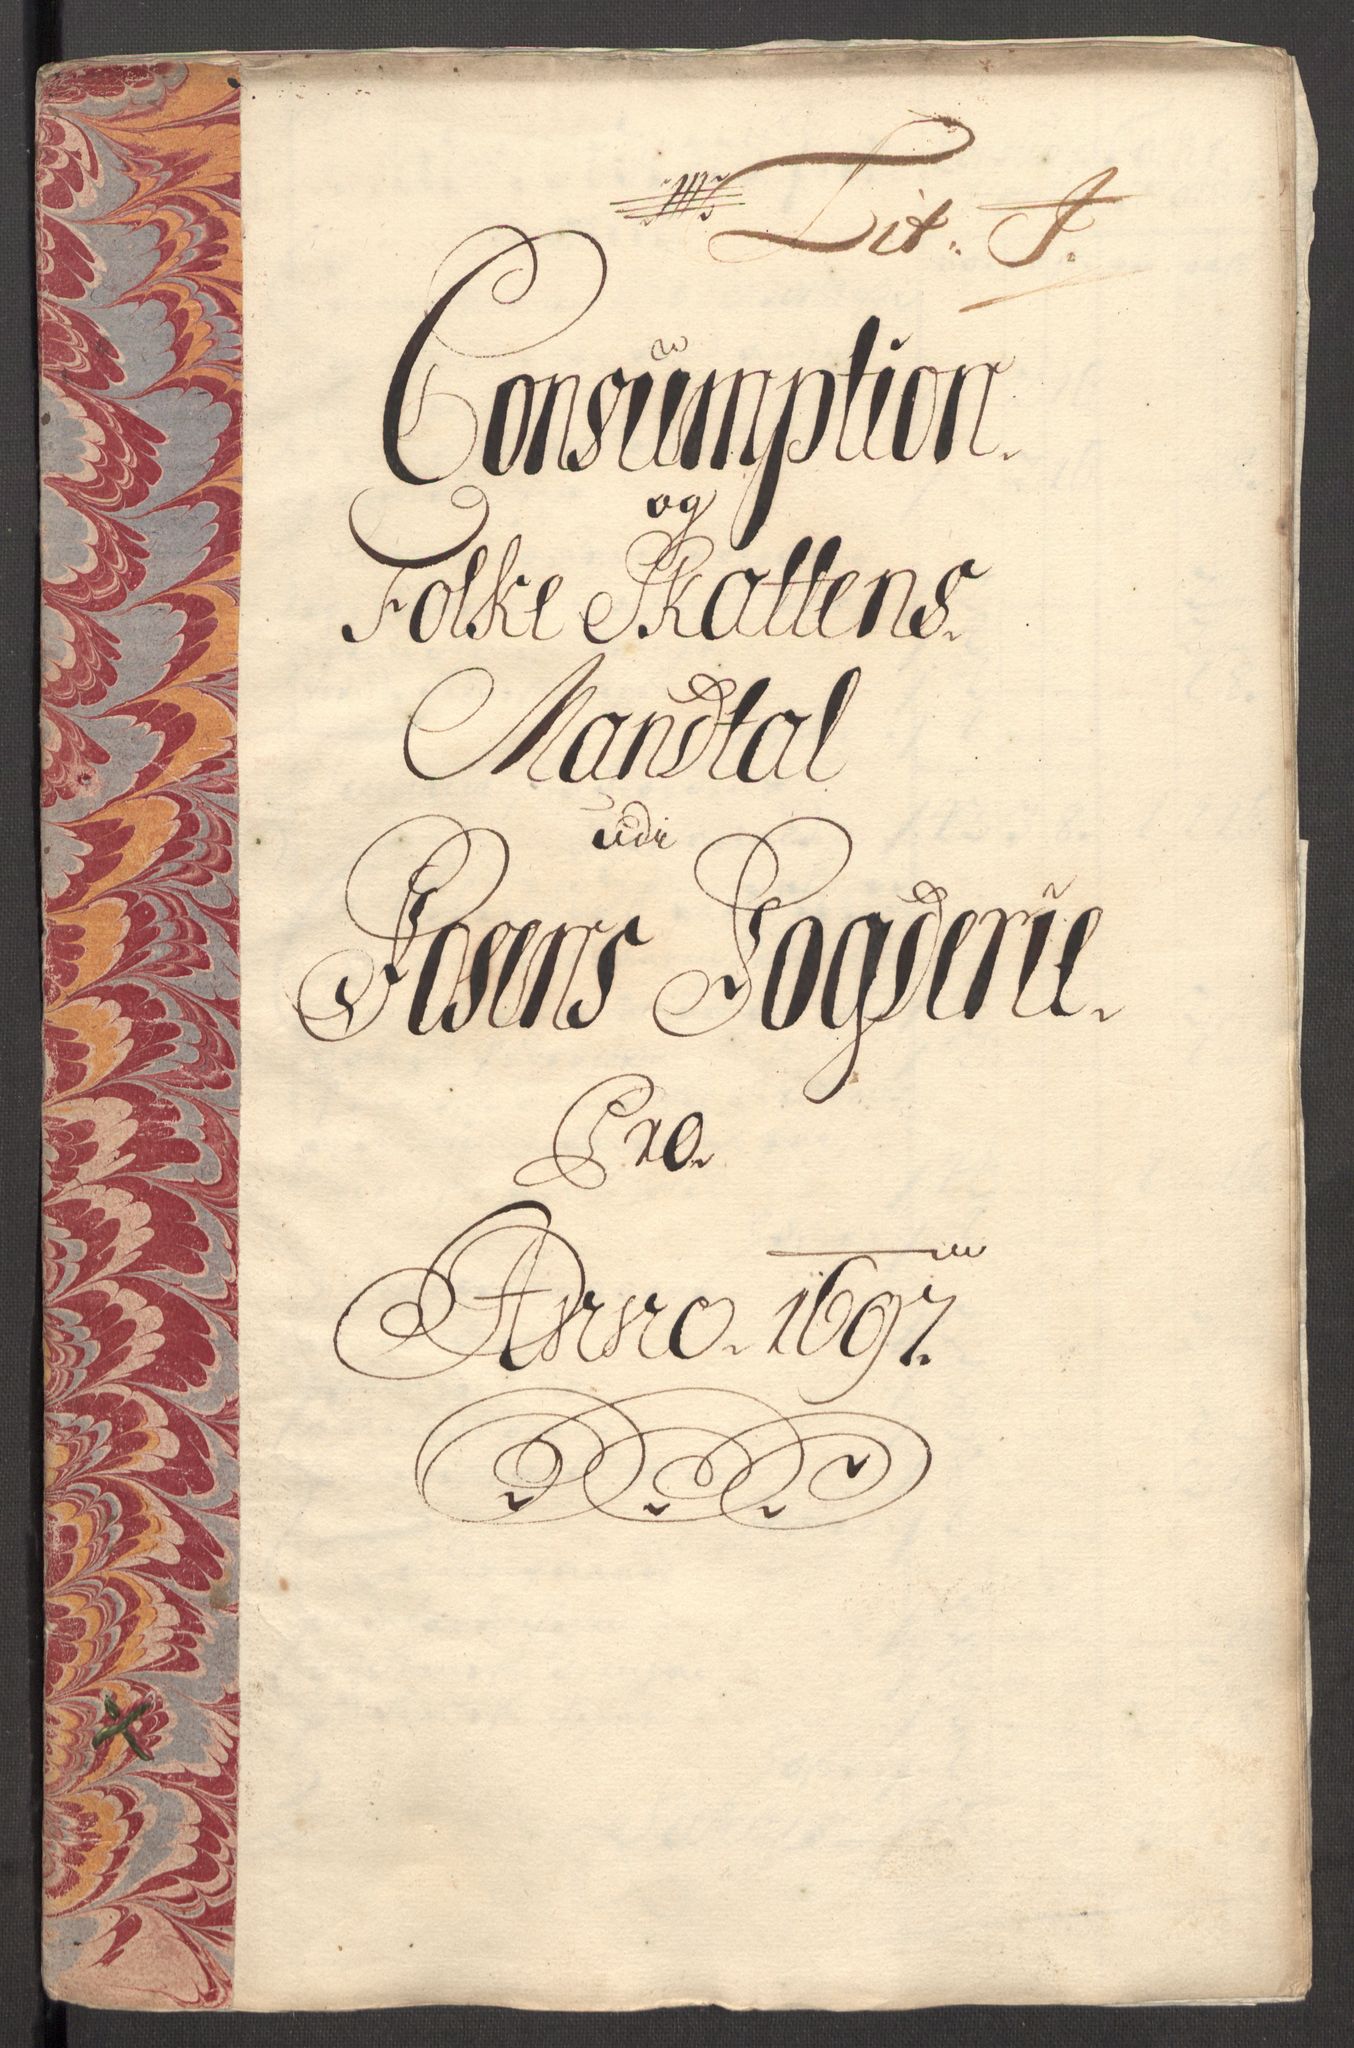 Lit. A.
Consumption.
og
Folke Skattens.
Mandtal
udi
Fosens Fogderie.
Pro.
Anno. 1697.